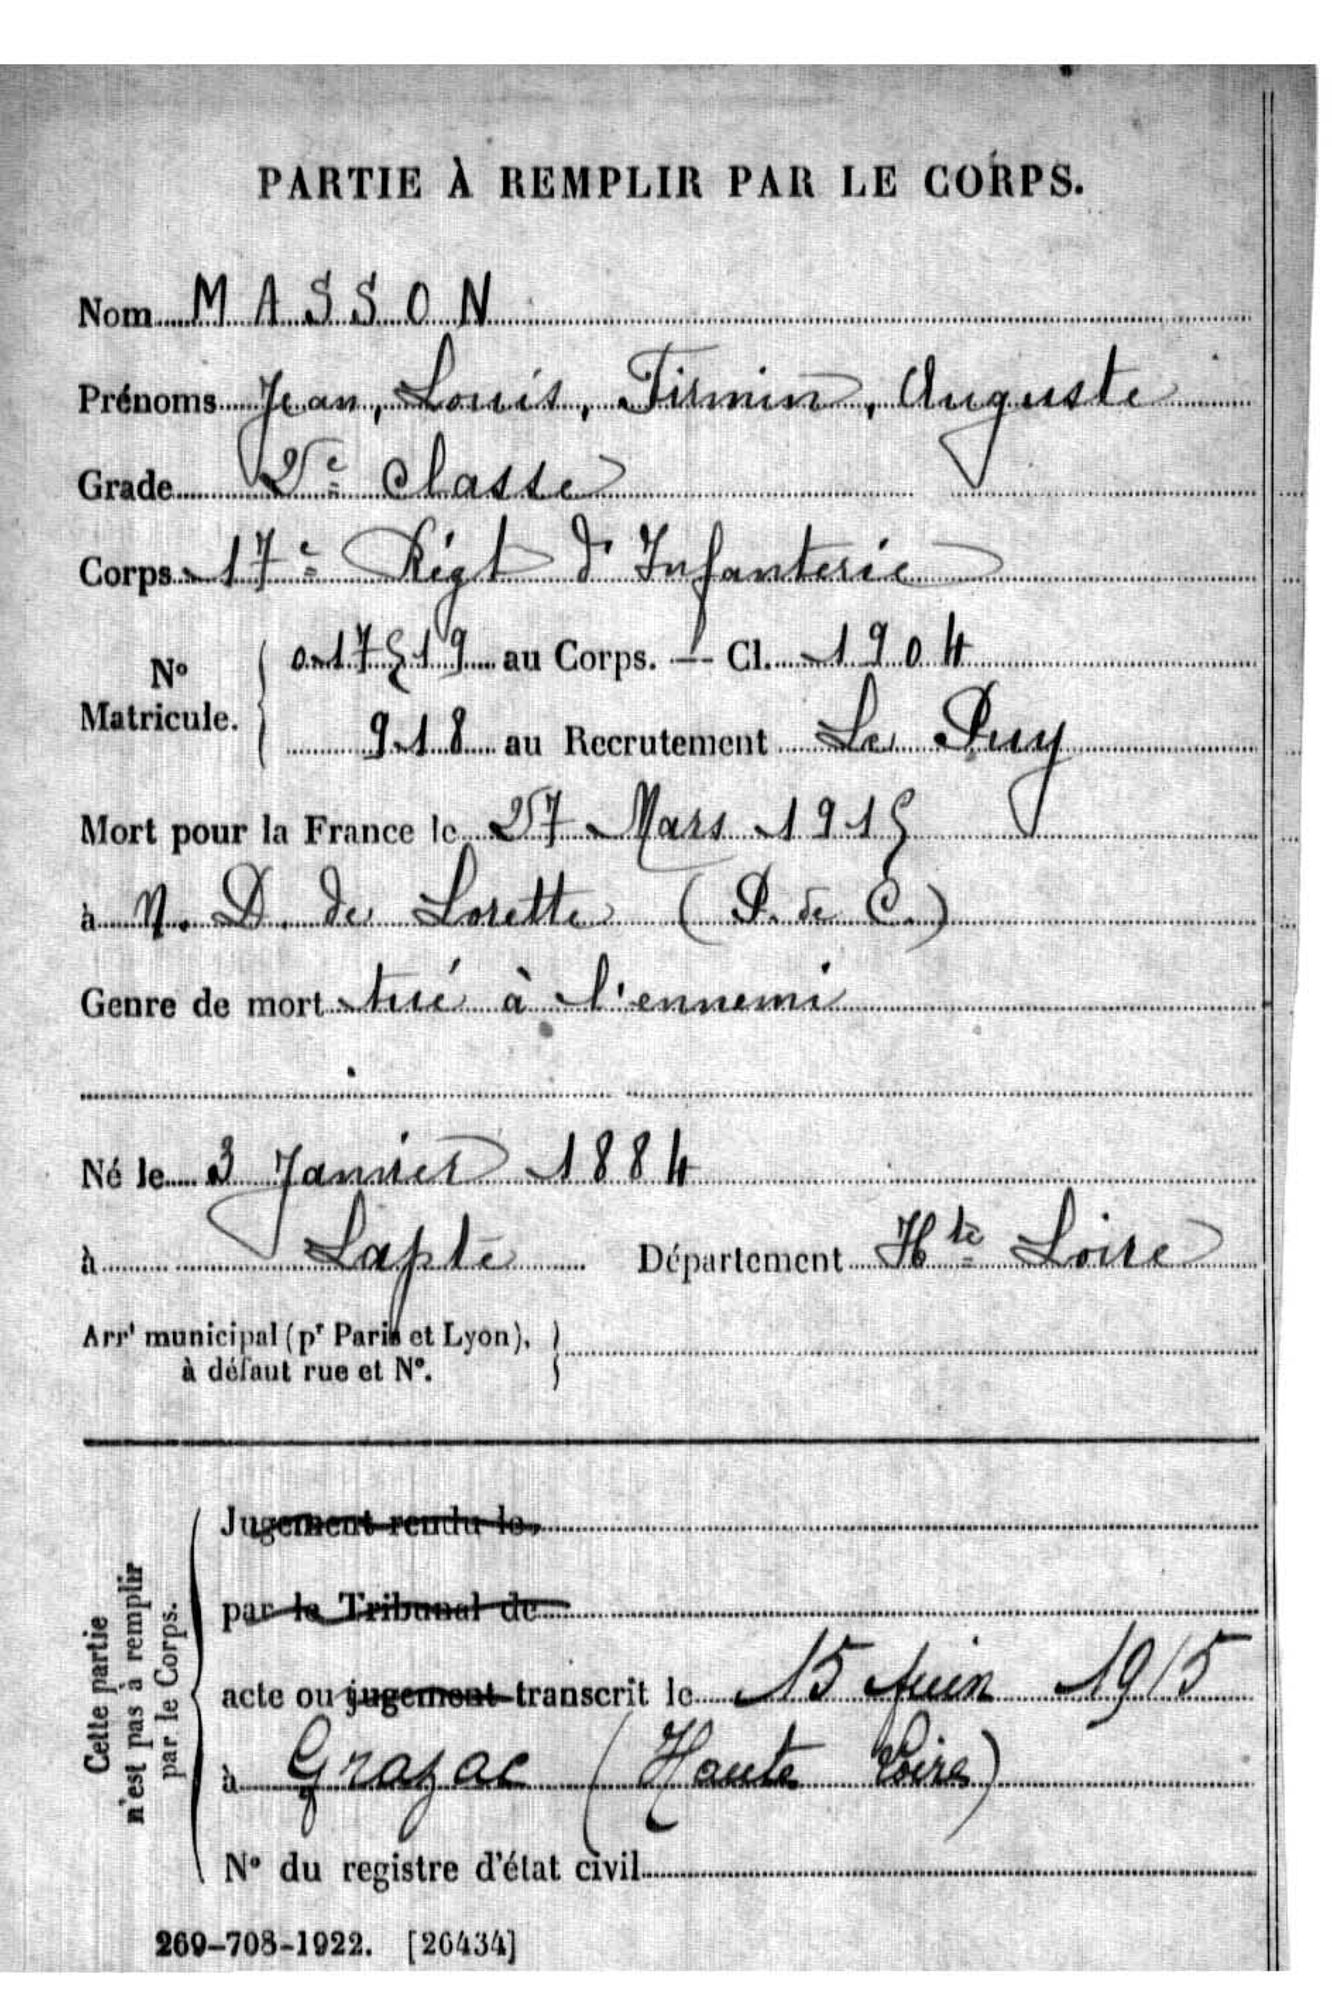 PARTIE À REMPLIR PAR LE CORPS.
Nom MASSON
Prénoms Jean, Louis, Firmin, Auguste
Grade 2e classe
Corps 17e Régt d'Infanterie
No Matricule. 017519 au Corps. — Cl. 1904
918 au Recrutement Le Puy
Mort pour la France le 27 Mars 1915
à N. D. de Lorette (P. de C.)
Genre de mort tué à l'ennemi
Né le 3 Janvier 1884
à Lapte Département Hte Loire
Arrt municipal (pr Paris et Lyon),
à défaut rue et No.
Cette partie
n'est pas à remplir
par le Corps.
Jugement rendu le,
par le Tribunal de
acte ou jugement transcrit le 15 Juin 1915
à Grazac (Haute Loire)
No du registre d'état civil
269-708-1922. [26434]